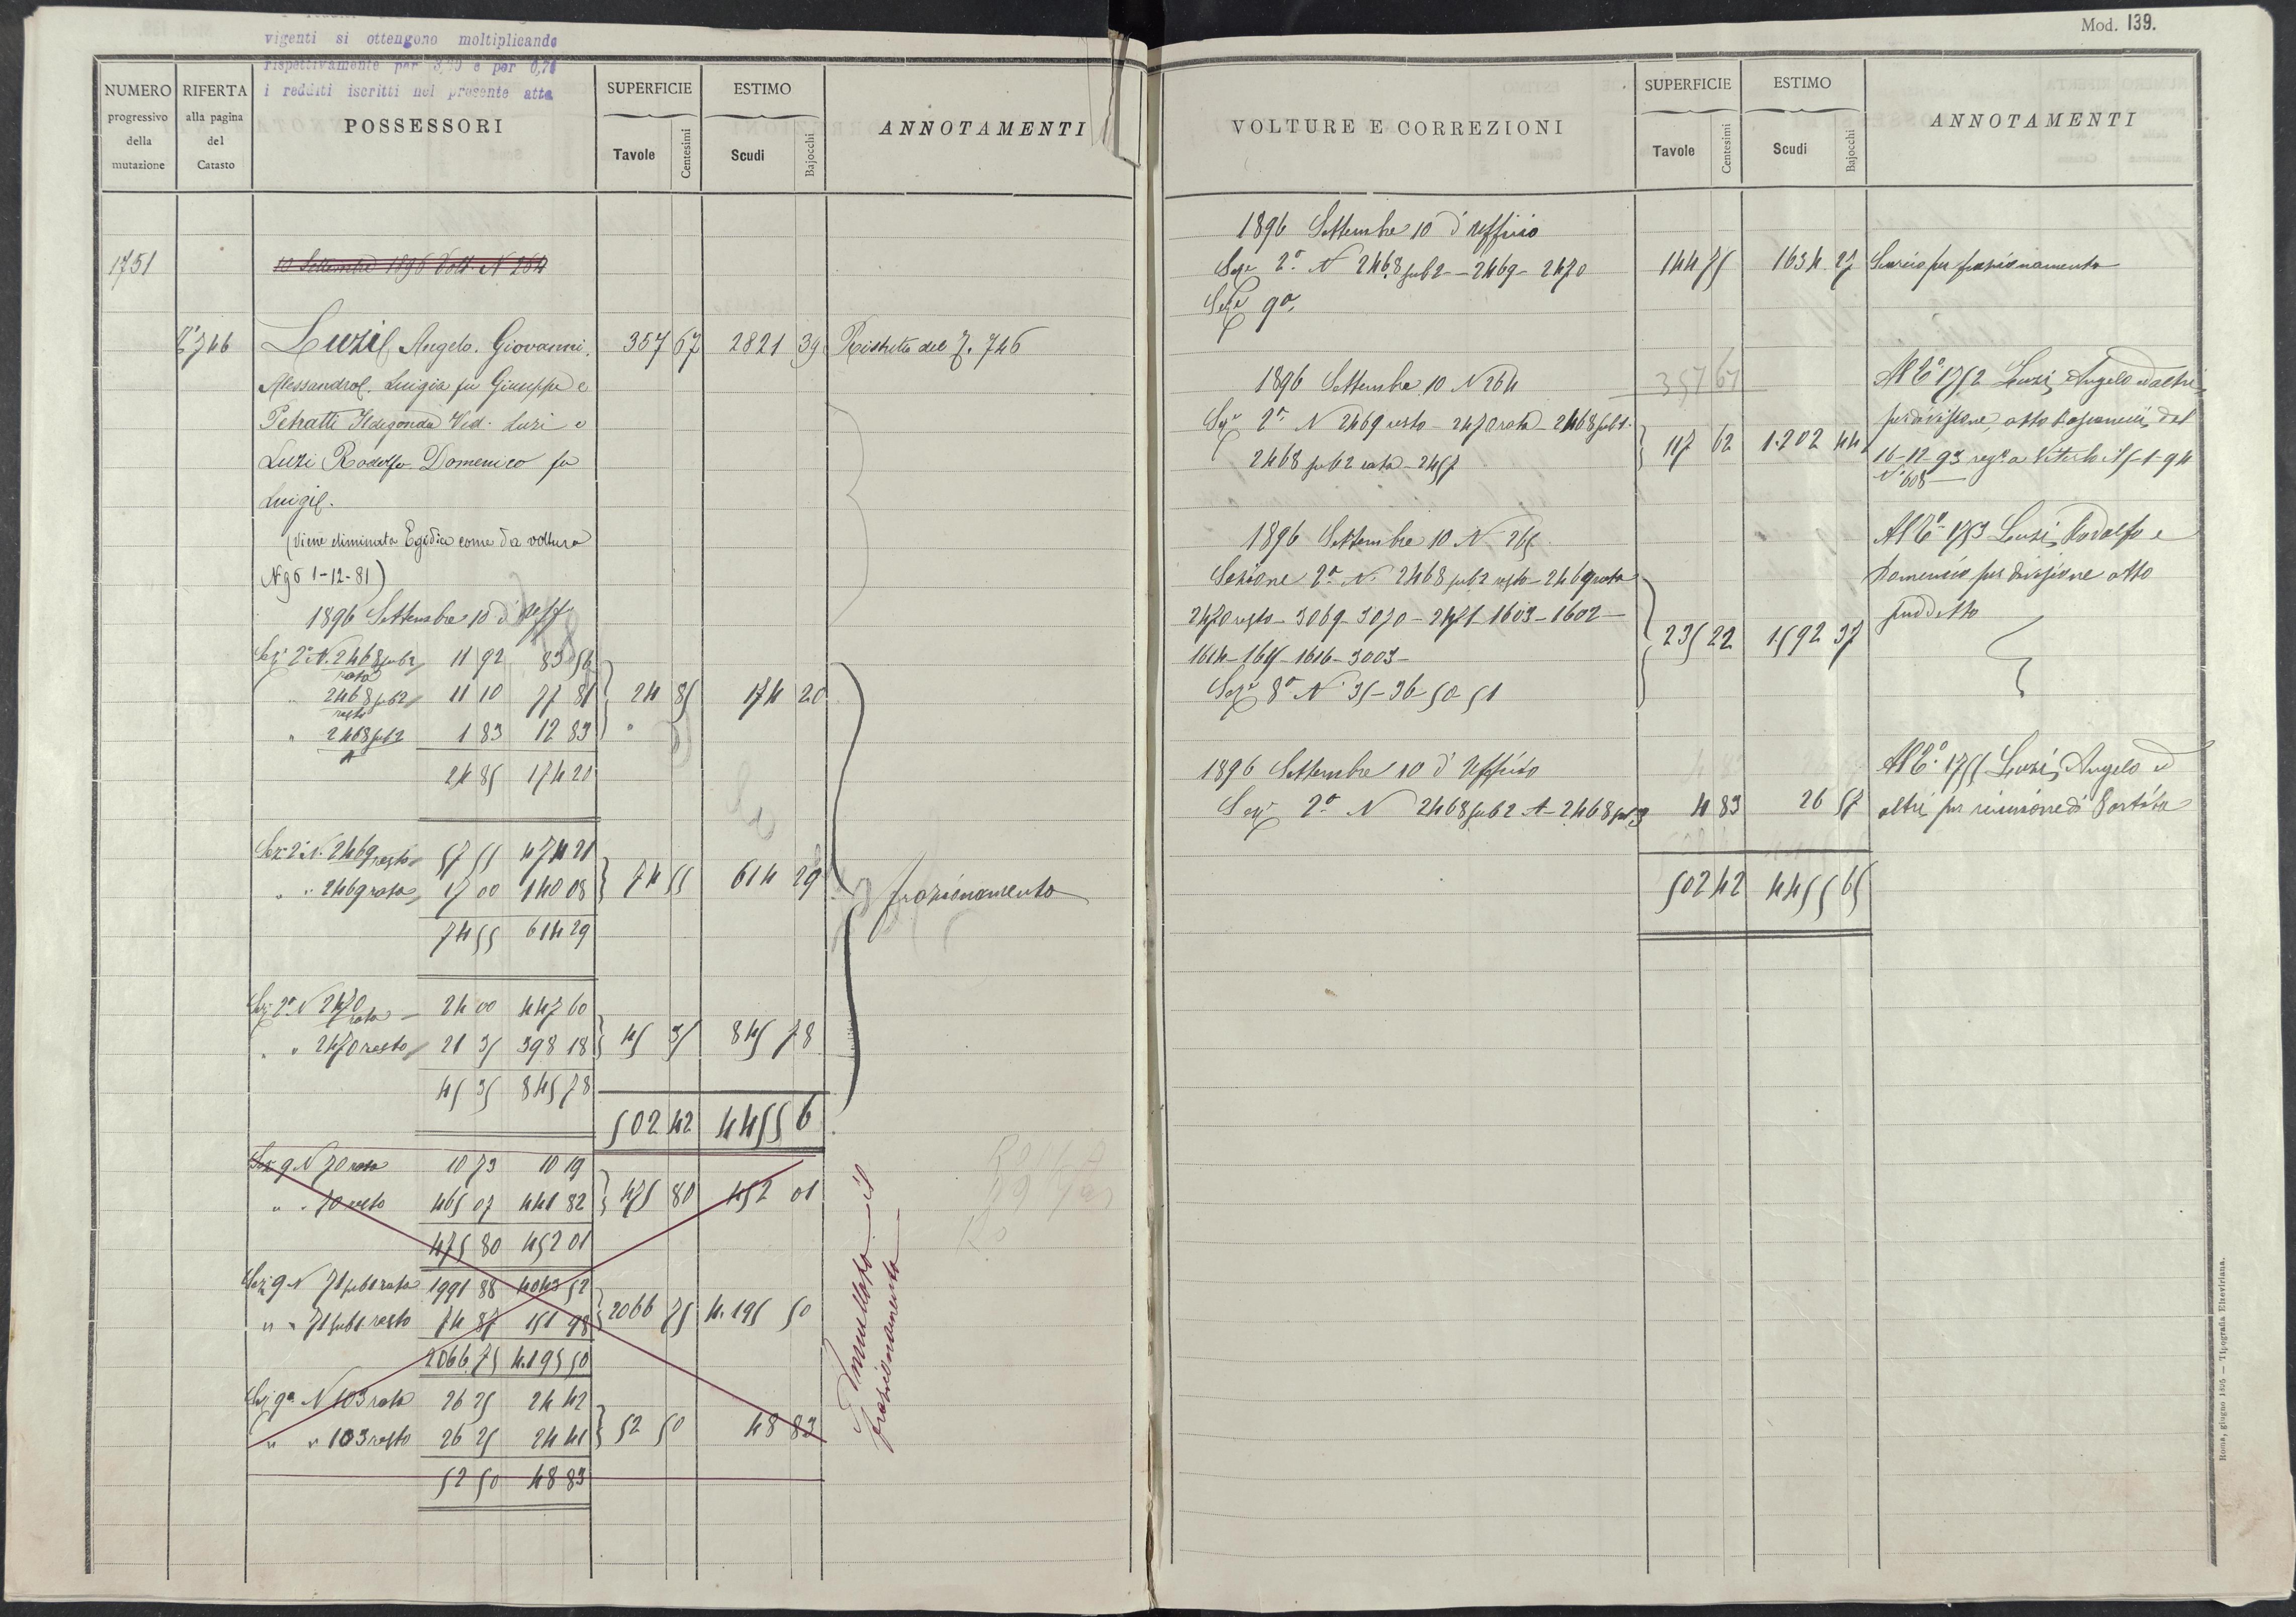 vigenti si ottengono moltiplicando
rispettivamente per e per 0,74
i redditi iscritti nel presente atto
NUMERO progressivo della mutazione
RIFERTA alla pagina del Catasto
POSSESSORI
SUPERFICIE Tavole Centesimi
ESTIMO Scudi Bajocchi
ANNOTAMENTI
1751 10 Settembre 1896 Volt. N 264
746 Luzi Angelo. Giovanni. 357 67 2821 39 Ristretto del 746
Alessandro. Luigia fu Giuseppe e
Petratti Ildegonda Ved. Luzi e
Luzi Rodolfo Domenico fu
Luigi.
(Viene eliminata Egidia come da voltura
N 96 1-12-81)
1896 Settembre 10 d'Uff
Sez. 2a N. 2468 sub 2 rata 11 92 83 56
" 2468 sub 2 resto 11 10 77 81 24 85 174 20
" 2468 sub 2 A 1 83 12 83
24 85 174 20
Sez 2a N. 2469 resto 57 55 474 21
" " 2469 rata 17 00 140 08 74 55 614 29 frazionamento
74 55 614 29
Sez. 2a N 2470 rata 24 00 447 60
" " 2470 resto 21 35 398 18 45 35 845 78
45 35 845 78
502 42 4455 6
Sez 9 N 70 rata 10 73 10 19
" " 70 resto 465 07 441 82 475 80 452 01
475 80 452 01
Sez 9 N 71 sub 1 rata 1991 88 4043 52
" " 71 sub 1 resto 74 87 151 98 2066 75 4.195 50
2066.75 4.195 50
Sez 9a N 103 rata 26 25 24 42
" " 103 resto 26 25 24 41 52 50 48 83
52 50 48 83
Annullato il
frazionamento
Mod. 139.
VOLTURE E CORREZIONI
SUPERFICIE Tavole Centesimi
ESTIMO Scudi Bajocchi
ANNOTAMENTI
1896 Settembre 10 d'Ufficio
Seze 2a N 2468 sub 2 - 2469 - 2470 144 75 1634. 27 Scarico per frazionamento
Seze 9a.
1896 Settembre 10 N 264 357 67 Al 1752 Luzi Angelo ed altri
Seze 2a N 2469 resto - 2470 rata - 2468 sub 1. per divisione, atto del
2468 sub 2 rata - 2457 117 62 1.202 44 16-12-93 rega a Viterbo 15-1-94
No 608
1896 Settembre 10 N 265. Al 1753 Luzi Rodolfo e
Sezione 2a N. 2468 sub 2 resto - 2469 rata Domenico per divisione atto
2470 resto - 3069 - 3070 - 2471 - 1603 - 1602 - suddetto
1614 - 1615 - 1616 - 3003 - 235 22 1592 37
Seze 8a N 35 - 36 - 50 51
1896 Settembre 10 d'Ufficio Al 1755 Luzi Angelo ed
Seze 2a N 2468 sub 2 A - 2468 sub 3 4 83 26 57 altri per riunione di Partita
502 42 4455 65
Roma, giugno 1895 — Tipografia Elzeviriana.